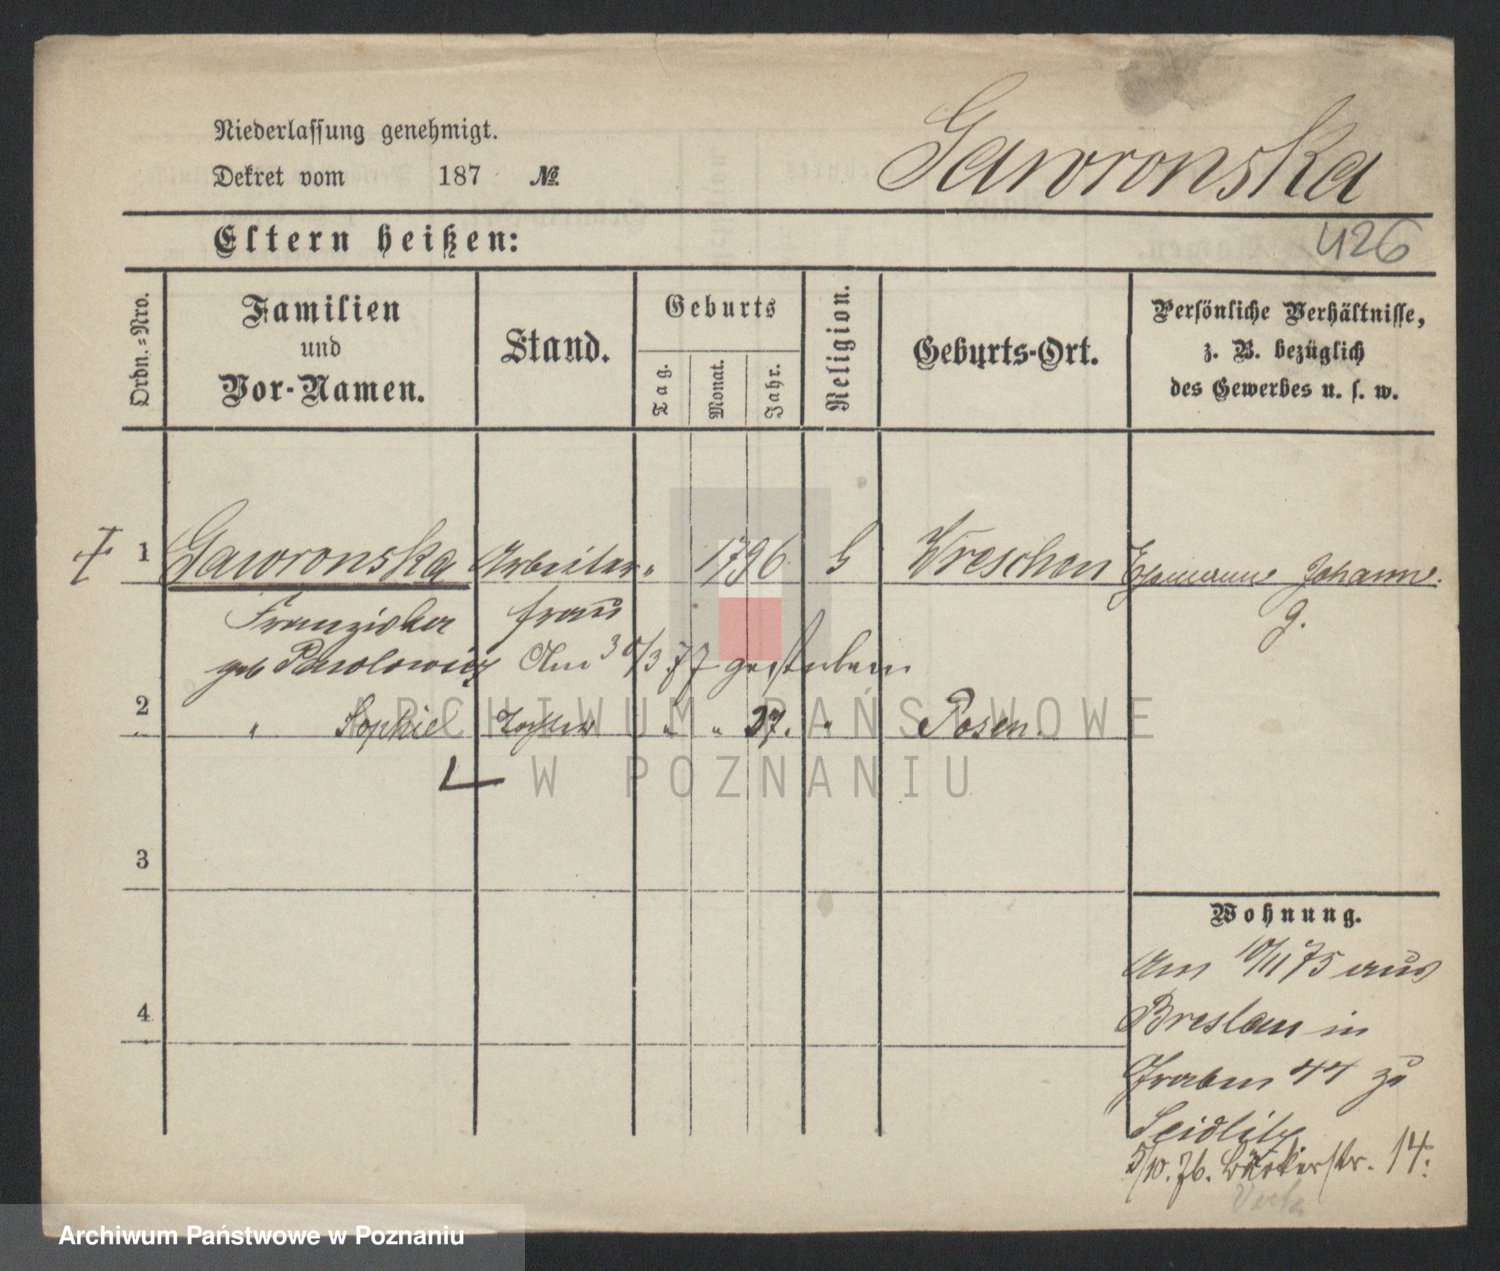 Niederlassung genehmigt.
Dekret vom 187 №.
Gaworonska
426
Eltern heißen:
Ordn.-Nro.
Familien
und
Vor-Namen.
Stand.
Geburts
Tag.
Monat.
Jahr.
Religion.
Geburts-Ort.
Persönliche Verhältnisse,
z. B. bezüglich
des Gewerbes u. s. w.
1 Gaworonska Arbeiter " 1796 Wreschen Ehemann Johann
Franziska frau g.
geb Pawlowicz Am 30/3 77 gestorben
2 " Sophie Tochter " " 37. " Posen.
3
4
Wohnung.
Am 10/11 75 aus
Breslau in
Graben 44 zu
Seidlitz
5/10. 76. Bäckerstr. 14.
ARCHIWUM PAŃSTWOWE
W POZNANIU
Archiwum Państwowe w Poznaniu